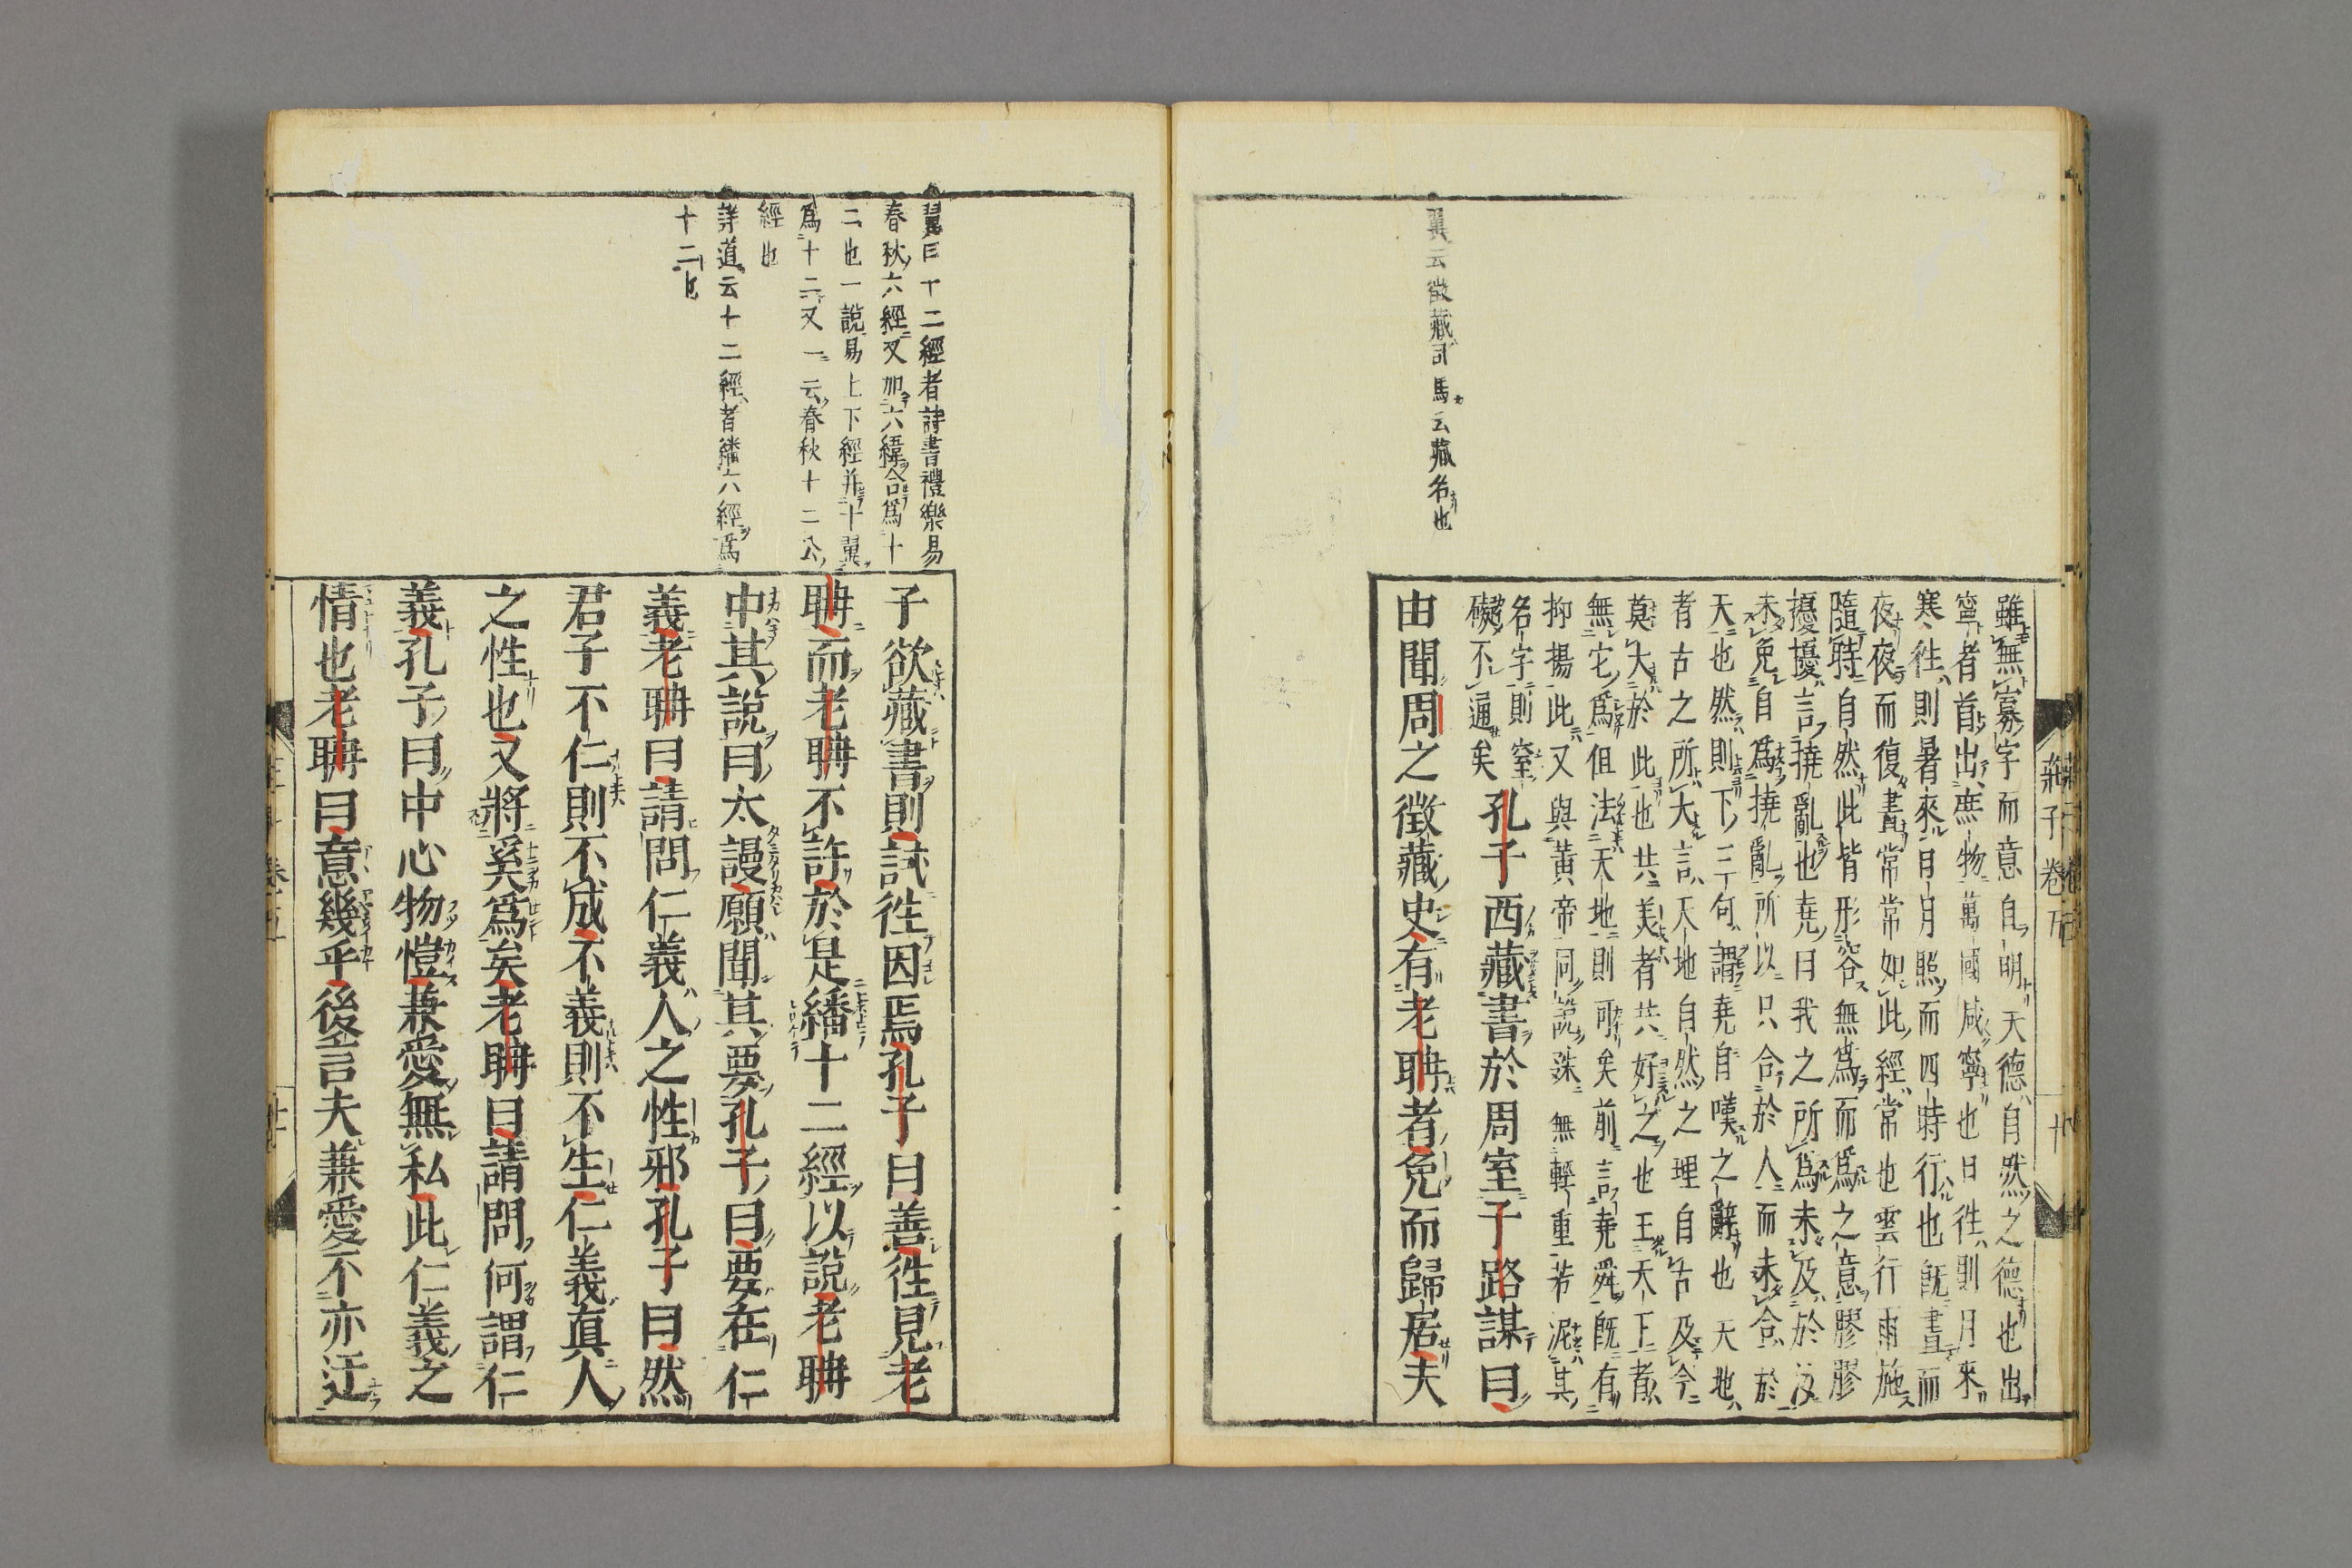 翼云徵藏司馬云藏名也
雖無寡字而意自明天德自然之德也出
寧者首出庶物萬國咸寧也日往則月來
寒往則暑來日月照而四時行也既晝而
夜夜而復晝常常如此經常也雲行雨施
隨時自然此皆形容無爲而爲之意膠膠
擾擾言撓亂也堯曰我之所爲未及於汝
未免自爲撓亂所以只合於人而未合於
天也然則下三何謂堯自嘆之辭也天地
者古之所大言天地自然之理自古及今
莫大於此也共美者共好之也王天下者
無它爲但法天地則可矣前言堯舜既有
抑揚此又與黃帝同說殊無輕重若泥其
名字則窒
礙不通矣孔子西藏書於周室子路謀曰
由聞周之徵藏史有老聃者免而歸居夫
莊子卷五
十
翼曰十二經者詩書禮樂易
春秋六經又加六緯合爲十
二也一說易上下經并十翼
爲十二又一云春秋十二公
經也
詳道云十二經者繙六經爲
十二也
子欲藏書則試往因焉孔子曰善往見老
聃而老聃不許於是繙十二經以說老聃
中其說曰太謾願聞其要孔子曰要在仁
義老聃曰請問仁義人之性邪孔子曰然
君子不仁則不成不義則不生仁義真人
之性也又將奚爲矣老聃曰請問何謂仁
義孔子曰中心物愷兼愛無私此仁義之
情也老聃曰意幾乎後言夫兼愛不亦迂